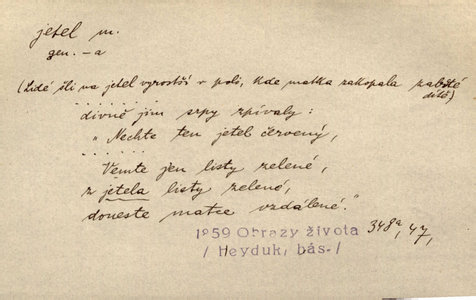 jetel m.
gen. -a
(Lidé šli na jetel vyrostší v poli, kde matka zakopala zabité
dítě)
. . . . . . . .
divně jim srpy zpívaly:
"Nechte ten jetel červený,
. . . . . .
Vemte jen listy zelené,
z jetela listy zelené,
doneste matce vzdálené."
348a, 47,
1859 Obrazy života
/ Heyduk, bás-/